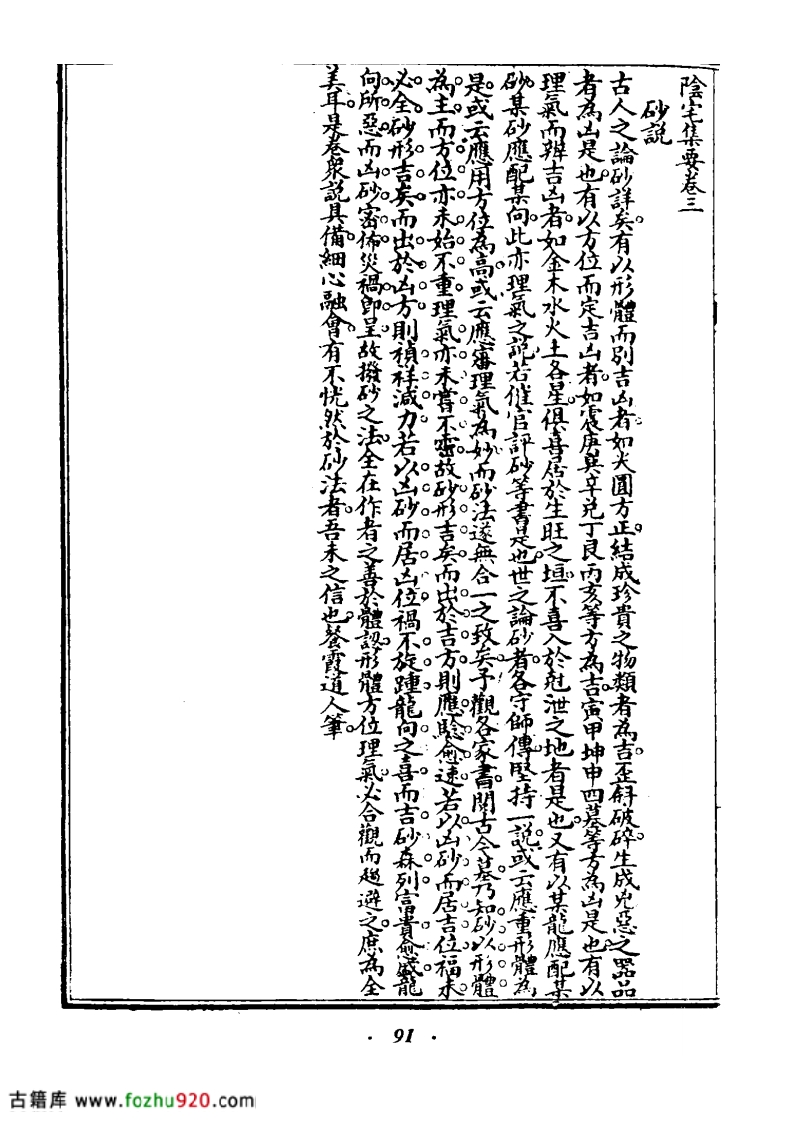 陰宅集要卷三
砂説
古人之論砂詳矣有以形體而別吉凶者如尖圓方正結成珍貴之物類者為吉歪斜破碎生成兇惡之器品
者為凶是也有以方位而定吉凶者如震庚巽辛兌丁艮丙亥等方為吉寅甲坤申四墓等方為凶是也有以
理氣而辨吉凶者如金木水火土各星俱喜居於生旺之垣不喜入於尅泄之地者是也又有以某龍應配某
砂某砂應配某向此亦理氣之説若催官評砂等書是也世之論砂者各守師傳堅持一説或云應重形體為
是或云應用方位為高或云應審理氣為妙而砂法遂無合一之致矣予觀各家書閱古今墓乃知砂以形體
為主而方位亦未始不重理氣亦未嘗不密故砂形吉矣而出於吉方則應驗愈速若以凶砂而居吉位福未
必全砂形吉矣而出於凶方則禎祥減力若以凶砂而居凶位禍不旋踵龍向之喜而吉砂森列富貴愈盛龍
向所惡而凶砂密佈災禍即呈故撥砂之法全在作者之善於體認形體方位理氣必合觀而趨避之庶為全
美耳是卷衆説具備細心融會有不恍然於砂法者吾未之信也餐霞道人筆
· 91 ·
古籍库 www.fozhu920.com